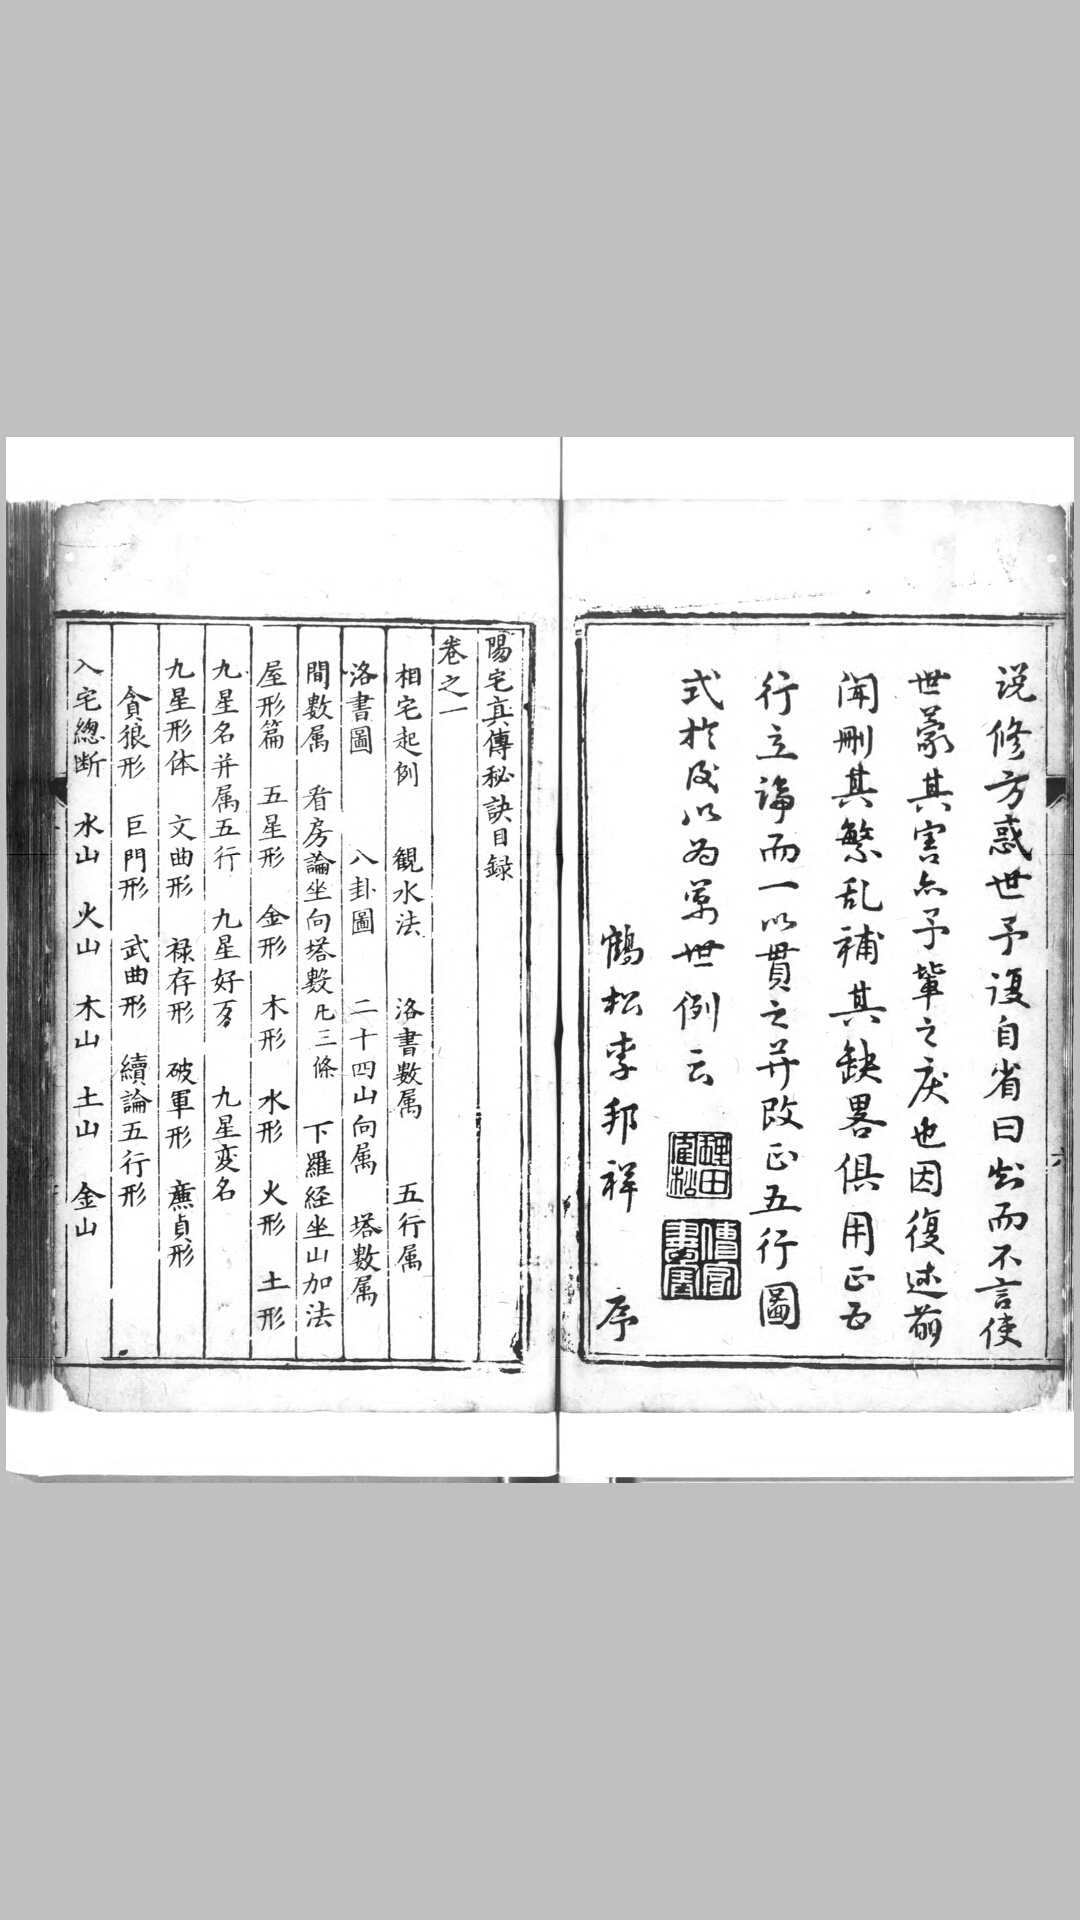 说修方惑世予復自省曰知而不言使
世蒙其害亦予輩之戾也因復述前
聞删其繁乱補其缺畧俱用正五
行立論而一以貫之并改正五行圖
式扵後以为萬世例云
鶴松李邦祥 序
六
陽宅真傳秘訣目録
卷之一
相宅起例 観水法 洛書數属 五行属
洛書圖 八卦圖 二十四山向属 塔數属
間數属 看房論坐向塔數凡三條 下羅経坐山加法
屋形篇 五星形 金形 木形 水形 火形 土形
九星名并属五行 九星好歹 九星変名
九星形体 文曲形 禄存形 破軍形 亷貞形
貪狼形 巨門形 武曲形 續論五行形
入宅總断 水山 火山 木山 土山 金山